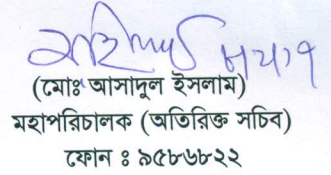 (মোঃ আসাদুল ইসলাম)
মহাপরিচালক (অতিরিক্ত সচিব)
ফোন ঃ ৯৫৮৬৮২২